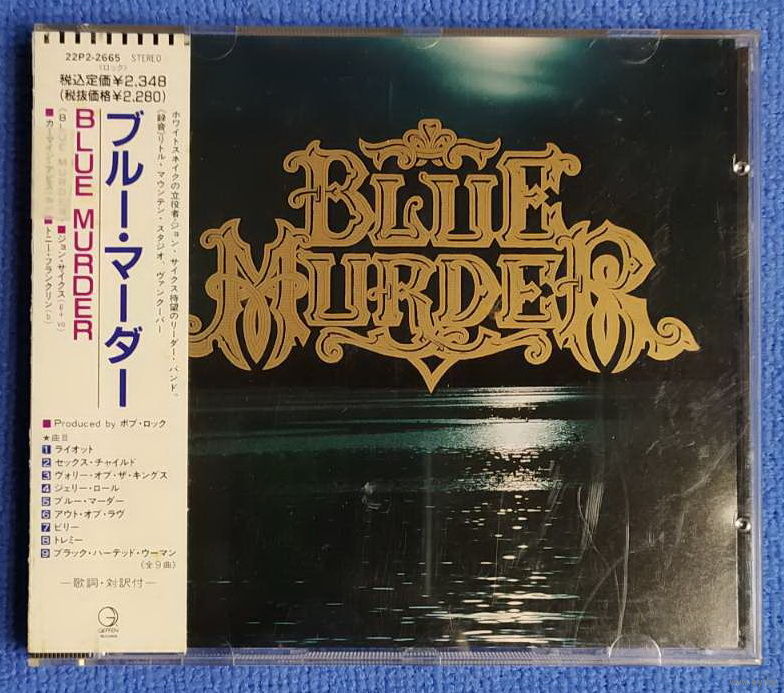 22P2-2665 STEREO
(ロック)
税込定価¥2,348
(税抜価格¥2,280)
ホワイトスネイクの立役者・ジョン・サイクス待望のリーダー・バンド。
(録音)リトル・マウンテン・スタジオ、ヴァンクーバー
ブルー・マーダー
BLUE MURDER
(BLUE MURDER)
■ジョン・サイクス(g+vo)
■カーマイン・アピス
■トニー・フランクリン(b)
■Produced by ボブ・ロック
★曲目
1 ライオット
2 セックス・チャイルド
3 ヴァリー・オブ・ザ・キングス
4 ジェリー・ロール
5 ブルー・マーダー
6 アウト・オブ・ラヴ
7 ビリー
8 トレミー
9 ブラック・ハーテッド・ウーマン
(全9曲)
—歌詞・対訳付—
GEFFEN
BLUE
MURDER